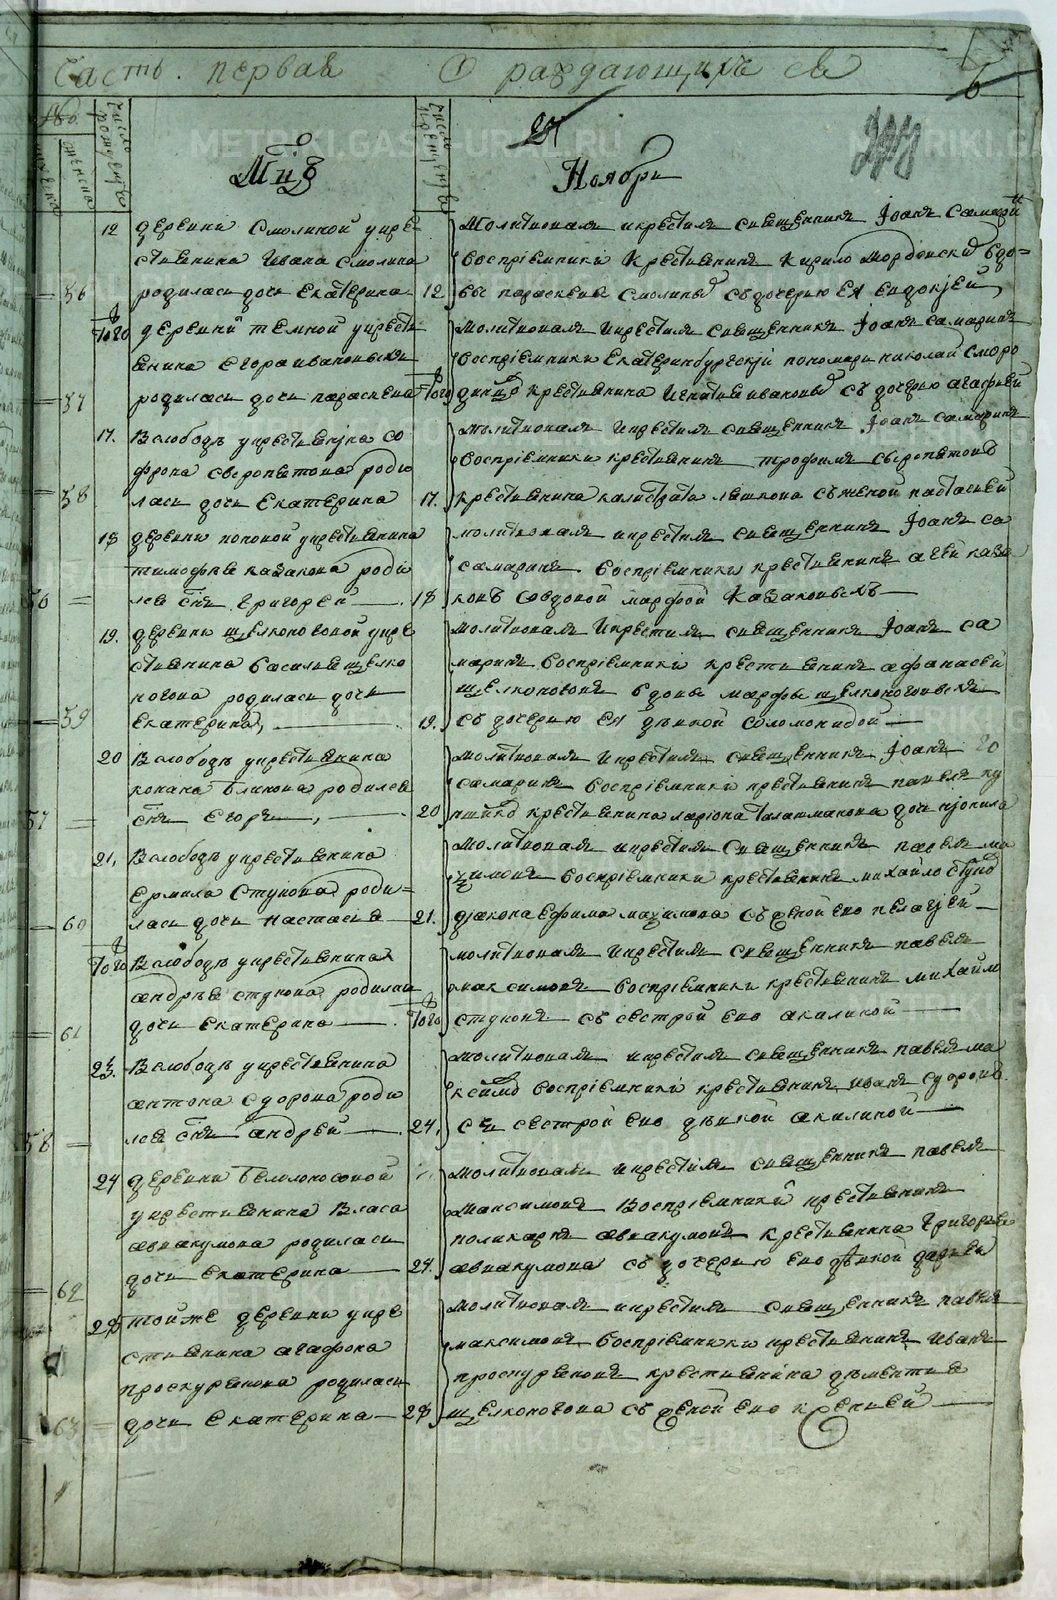 Часть первая О раждающихъ ся
6
число рожденїя
женска
число крещенїя
Мцъ Ноябрь
12 деревни Смолиной укре
стьянина Ивана Смолина
56 родилась дочь Екатерина
Молитвовалъ икрестилъ священникъ Іоаннъ Самаринъ
восприемники крестьянинъ Кирило
12 вы парасковья Смолины съ дочерию ея евдокіей
Того деревни темной укрестья
янина Егора ивановыхъ
57 родилась дочь парасковья
молитвовалъ икрестилъ священникъ Іоаннъ самаринъ
восприемники Екатеринбурскій пономарь николай Сморо
Того крестьянина Игнатия ивановыхъ съ дочерию агафьей
17. Вслободъ укрестьянина со
фрона сверопятова роди
58 лась дочь Екатерина
молитвовалъ икрестилъ священникъ Іоаннъ самаринъ
восприемники крестьянинъ трофимъ сверопятовъ
17. крестьянина калистрата лышкова съ женой настасьей
18 деревни поповой укрестьянина
тимофея казакова роди
56 лся сынъ григорей
молитвовалъ икрестилъ священникъ Іоаннъ са
самаринъ восприемники крестьянинъ агей каза
18 ковъ совдовой марфой Казаковыхъ
19. деревни щелконоговой укре
стьянина Василья щелко
ногова родилась дочь
59 Екатерина,
молитвовалъ икрестилъ священникъ Іоаннъ са
маринъ восприемники крестьянинъ афанасей
щелконоговъ вдовы марфы щелконоговыхъ
19. съ дочерию ея дѣвкой соломонидой
20 Вслободъ укрестьянина
конана блинова родился
57 сынъ Егоръ,
молитвовалъ икрестилъ священникъ Іоаннъ
самаринъ восприемники крестьянинъ павелъ ку
20 крестьянина ларіона талашманова дочь
21, Вслободъ укрестьянина
Ермила Ступова роди=
60 лась дочь настасья
молитвовалъ икрестилъ священникъ павелъ ма
ксимовъ восприемники крестьянинъ михайло ступо
21. дьякона Ефима максимова съ женой ево пелагіей
Того Вслободъ укрестьянина
андрея ступова родилась
61 дочь Екатерина
молитвовалъ икрестилъ священникъ павелъ
максимовъ восприемники крестьянинъ михайло
Того ступовъ съ сестрой ево акилиной
23. Вслободъ укрестьянина
антона сдорова роди
58 лся сынъ андрей
молитвовалъ икрестилъ священникъ павелъ ма
ксимо восприемники крестьянинъ иванъ судоровъ
24. съ сестрой ево дѣвкой акилиной
24 деревни белоносовой
укрестьянина Власа
авакумова родилась
62 дочь екатерина
молитвовалъ икрестилъ священникъ павелъ
максимовъ восприемники крестьянинъ
поликарпъ авакумовъ крестьянина григорья
24. авакумова съ дочерию ево дѣвкой дарьей
25 тойже деревни укре
стьянина агафона
проскурякова родилась
63 дочь екатерина
молитвовалъ икрестилъ священникъ павелъ
максимовъ восприемники крестьянинъ Иванъ
проскуряковъ крестьянина дементия
28 щелконогова съ женой ево ксеньей